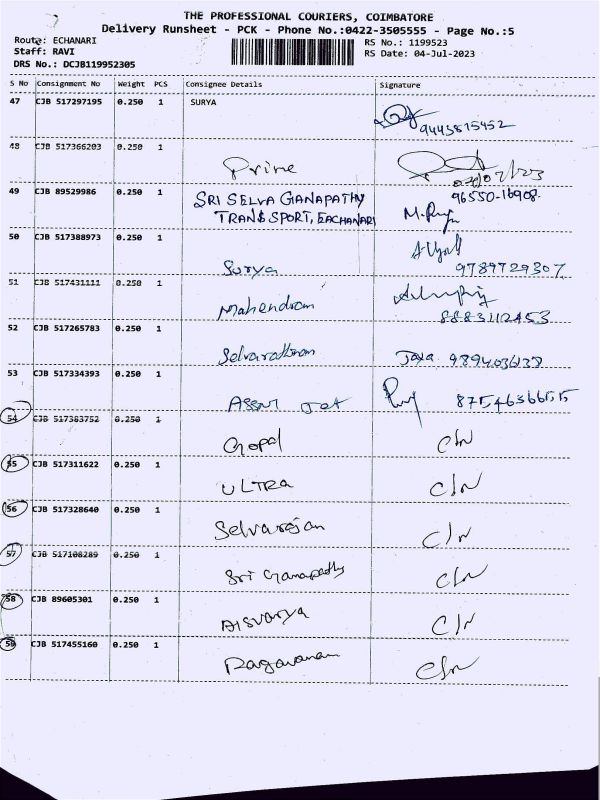 THE PROFESSIONAL COURIERS, COIMBATORE
Delivery Runsheet - PCK - Phone No.:0422-3505555 - Page No.:5
Route: ECHANARI
RS No.: 1199523
Staff: RAVI
RS Date: 04-Jul-2023
DRS No.: DCJB119952305
S No Consignment No Weight PCS Consignee Details Signature
47 CJB 517297195 0.250 1 SURYA
9443815452
48 CJB 517366203 0.250 1
Prime
49 CJB 89529986 0.250 1 SRI SELVA GANAPATHY 96550-16908
TRANSPORT, EACHANARI
50 CJB 517388973 0.250 1
Surya 9789729307
51 CJB 517431111 0.250 1
Mahendran
8883112453
52 CJB 517265783 0.250 1
Selvarathinam Jaya
53 CJB 517334393 0.250 1
Assur Jet 8754636655
54 CJB 517383752 0.250 1
Gopal C/N
55 CJB 517311622 0.250 1
ULTRA C/N
56 CJB 517328640 0.250 1
Selvarajan C/N
57 CJB 517108289 0.250 1
Sri Ganapathy C/N
58 CJB 89605301 0.250 1
Aisvarya C/N
59 CJB 517455160 0.250 1
Ragavanam C/N